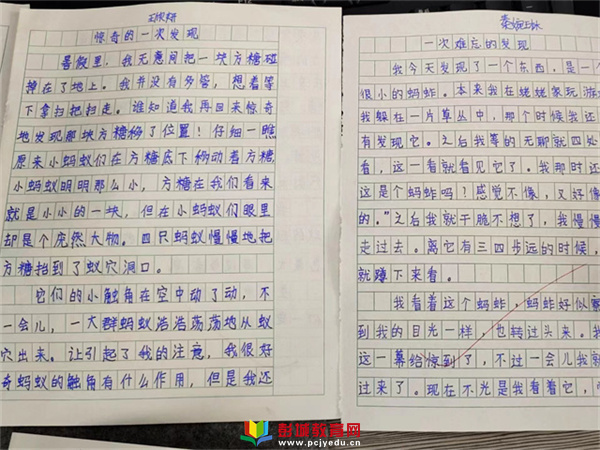 惊奇的一次发现
暑假里，我无意间把一块方糖碰
掉在了地上。我并没有多管，想着等
下拿扫把扫走。谁知道我再回来惊奇
地发现那块方糖移了位置！仔细一瞧
原来小蚂蚁们在方糖底下挪动着方糖
小蚂蚁明明那么小，方糖在我们看来
就是小小的一块，但在小蚂蚁们眼里
却是个庞然大物。四只蚂蚁慢慢地把
方糖抬到了蚁穴洞口。
它们的小触角在空中动了动，不
一会儿，一大群蚂蚁浩浩荡荡地从蚁
穴出来。让引起了我的注意，我很好
奇蚂蚁的触角有什么作用，但是我还
一次难忘的发现
我今天发现了一个东西，是一个
很小的蚂蚱。本来我在姥姥家玩游
我躲在一片草丛中，那个时候我还
有发现它。之后我等的无聊就四处
看，这一看就看见它了。我那时还
这是个蚂蚱吗？感觉不像，又好像
的。”之后我就干脆不想了，我慢慢
走过去。离它有三四步远的时候，
就蹲下来看。
我看着这个蚂蚱，蚂蚱好似察
到我的目光一样，也转过头来。我
这一幕给惊到了，不过一会儿我就
过来了。现在不光是我看着它，
彭城教育网
www.pcjyedu.cn